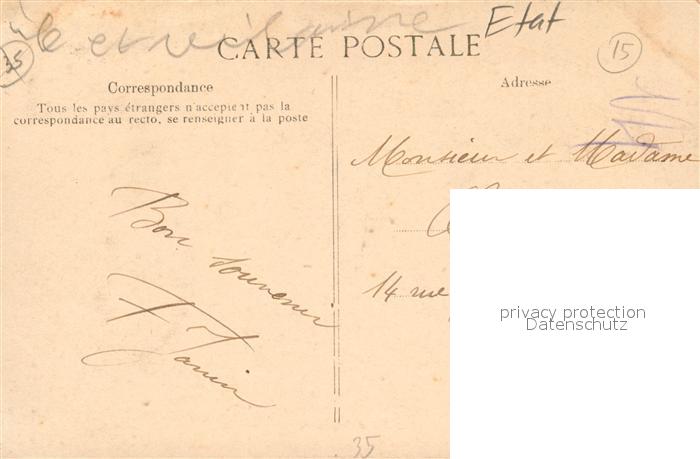 35
Ille et Vilaine
Etat
15
CARTE POSTALE
Correspondance
Tous les pays étrangers n'acceptent pas la
correspondance au recto, se renseigner à la poste
Adresse
Monsieur et Madame
14 rue
Bon souvenir
F Janin
35
privacy protection
Datenschutz